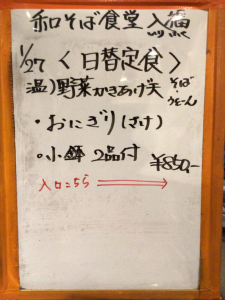 和そば食堂
1/27 〈日替定食〉
温)野菜かきあげ天 そば・うどん
・おにぎり(さけ)
・小鉢 2品付 ¥850,-
入口こちら